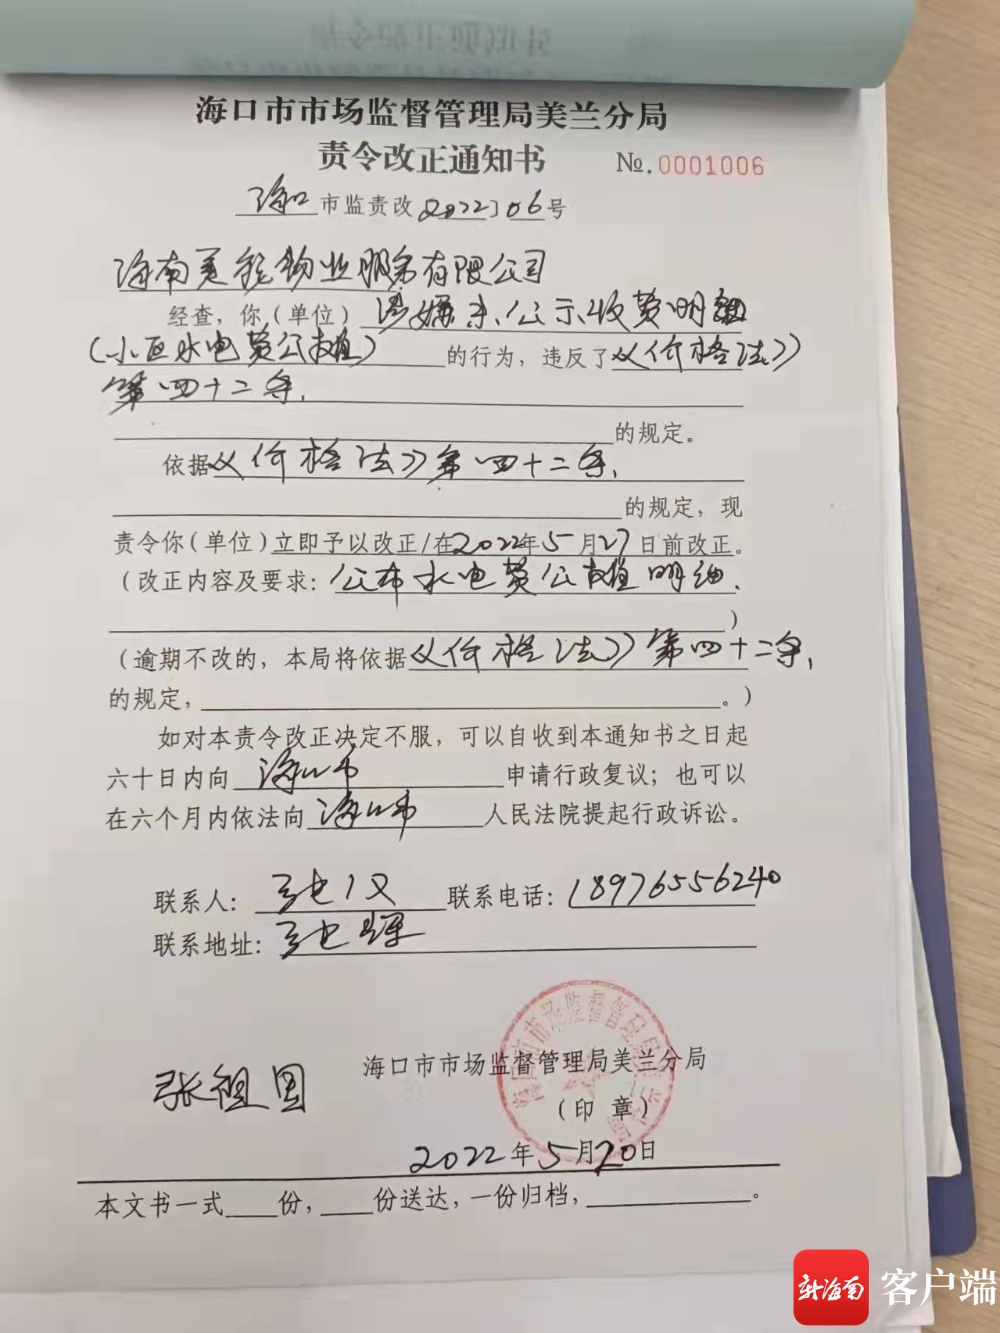 海口市市场监督管理局美兰分局
责令改正通知书 №.0001006
海口市监责改〔2022〕06号
海南美 物业服务有限公司
经查，你（单位）涉嫌未公示收费明细
（小区水电费公摊）的行为，违反了《价格法》
第四十二条，
的规定。
依据《价格法》第四十二条，
的规定，现
责令你（单位）立即予以改正/在2022年5月27日前改正。
（改正内容及要求：公布水电费公摊明细.
）
（逾期不改的，本局将依据《价格法》第四十二条，
的规定，。）
如对本责令改正决定不服，可以自收到本通知书之日起
六十日内向海口市申请行政复议；也可以
在六个月内依法向海口市人民法院提起行政诉讼。
联系人： 联系电话：18976556240
联系地址：
海口市市场监督管理局美兰分局
张祖国 （印 章）
2022年5月20日
本文书一式 份， 份送达，一份归档， 。
新海南 客户端